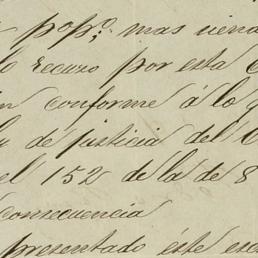 pᵒpᵒ; mas viena
lo recurzo por esta C
in conforme á lo q
ly de justicia del C
el 152 de la de 8
consecuencia
presentado éste esc